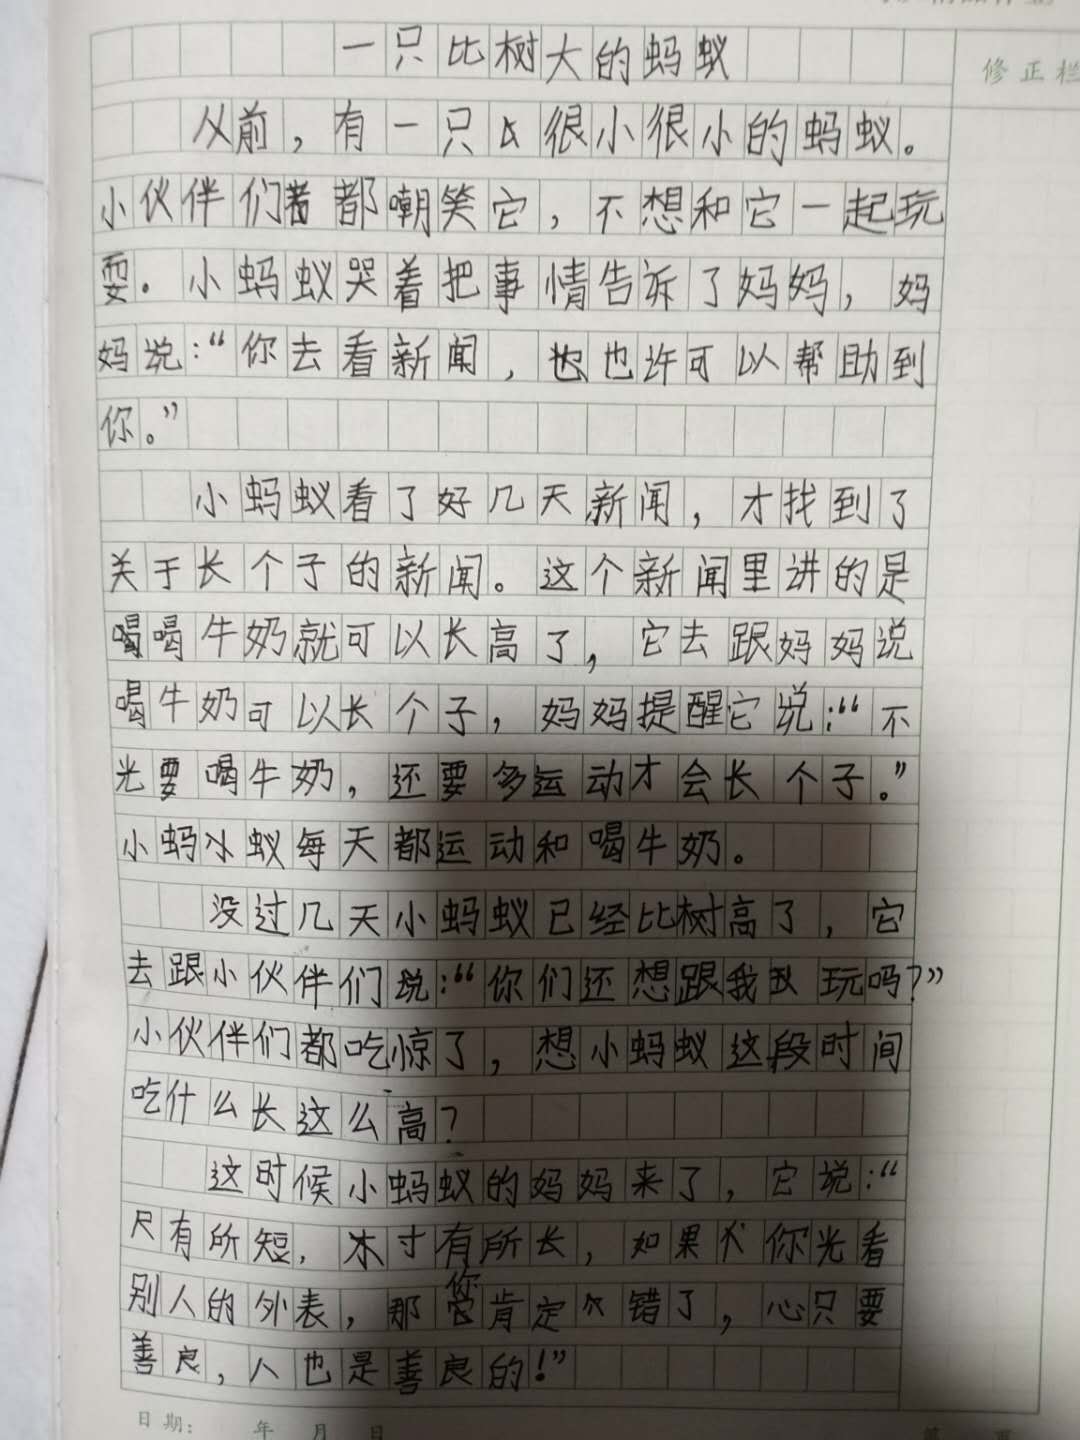 修正栏
一只比树大的蚂蚁
从前，有一只很小很小的蚂蚁。
小伙伴们都嘲笑它，不想和它一起玩
耍。小蚂蚁哭着把事情告诉了妈妈，妈
妈说：“你去看新闻，也许可以帮助到
你。”
小蚂蚁看了好几天新闻，才找到了
关于长个子的新闻。这个新闻里讲的是
喝喝牛奶就可以长高了，它去跟妈妈说
喝牛奶可以长个子，妈妈提醒它说：“不
光要喝牛奶，还要多运动才会长个子。”
小蚂蚁每天都运动和喝牛奶。
没过几天小蚂蚁已经比树高了，它
去跟小伙伴们说：“你们还想跟我玩吗？”
小伙伴们都吃惊了，想小蚂蚁这段时间
吃什么长这么高？
这时候小蚂蚁的妈妈来了，它说：“
尺有所短，木寸有所长，如果你光看
别人的外表，那你肯定错了，心只要
善良，人也是善良的！”
日期： 年 月 日